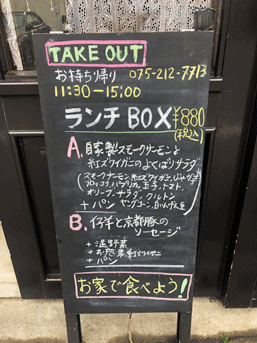 TAKE OUT
お持ち帰り 075-212-7713
11:30-15:00
ランチBOX ¥880
(税込)
A. 自家製スモークサーモンと
紅ズワイガニのよくばりサラダ
(スモークサーモン、紅ズワイガニ、じゃがいも
ブロッコリ、パプリカ、玉子、トマト、
オリーブ、サラダ、クルトン
+パン ヤングコーン、白いんげん豆)
B. 仔羊と京都豚の
ソーセージ
+温野菜
+パン
お家で食べよう!